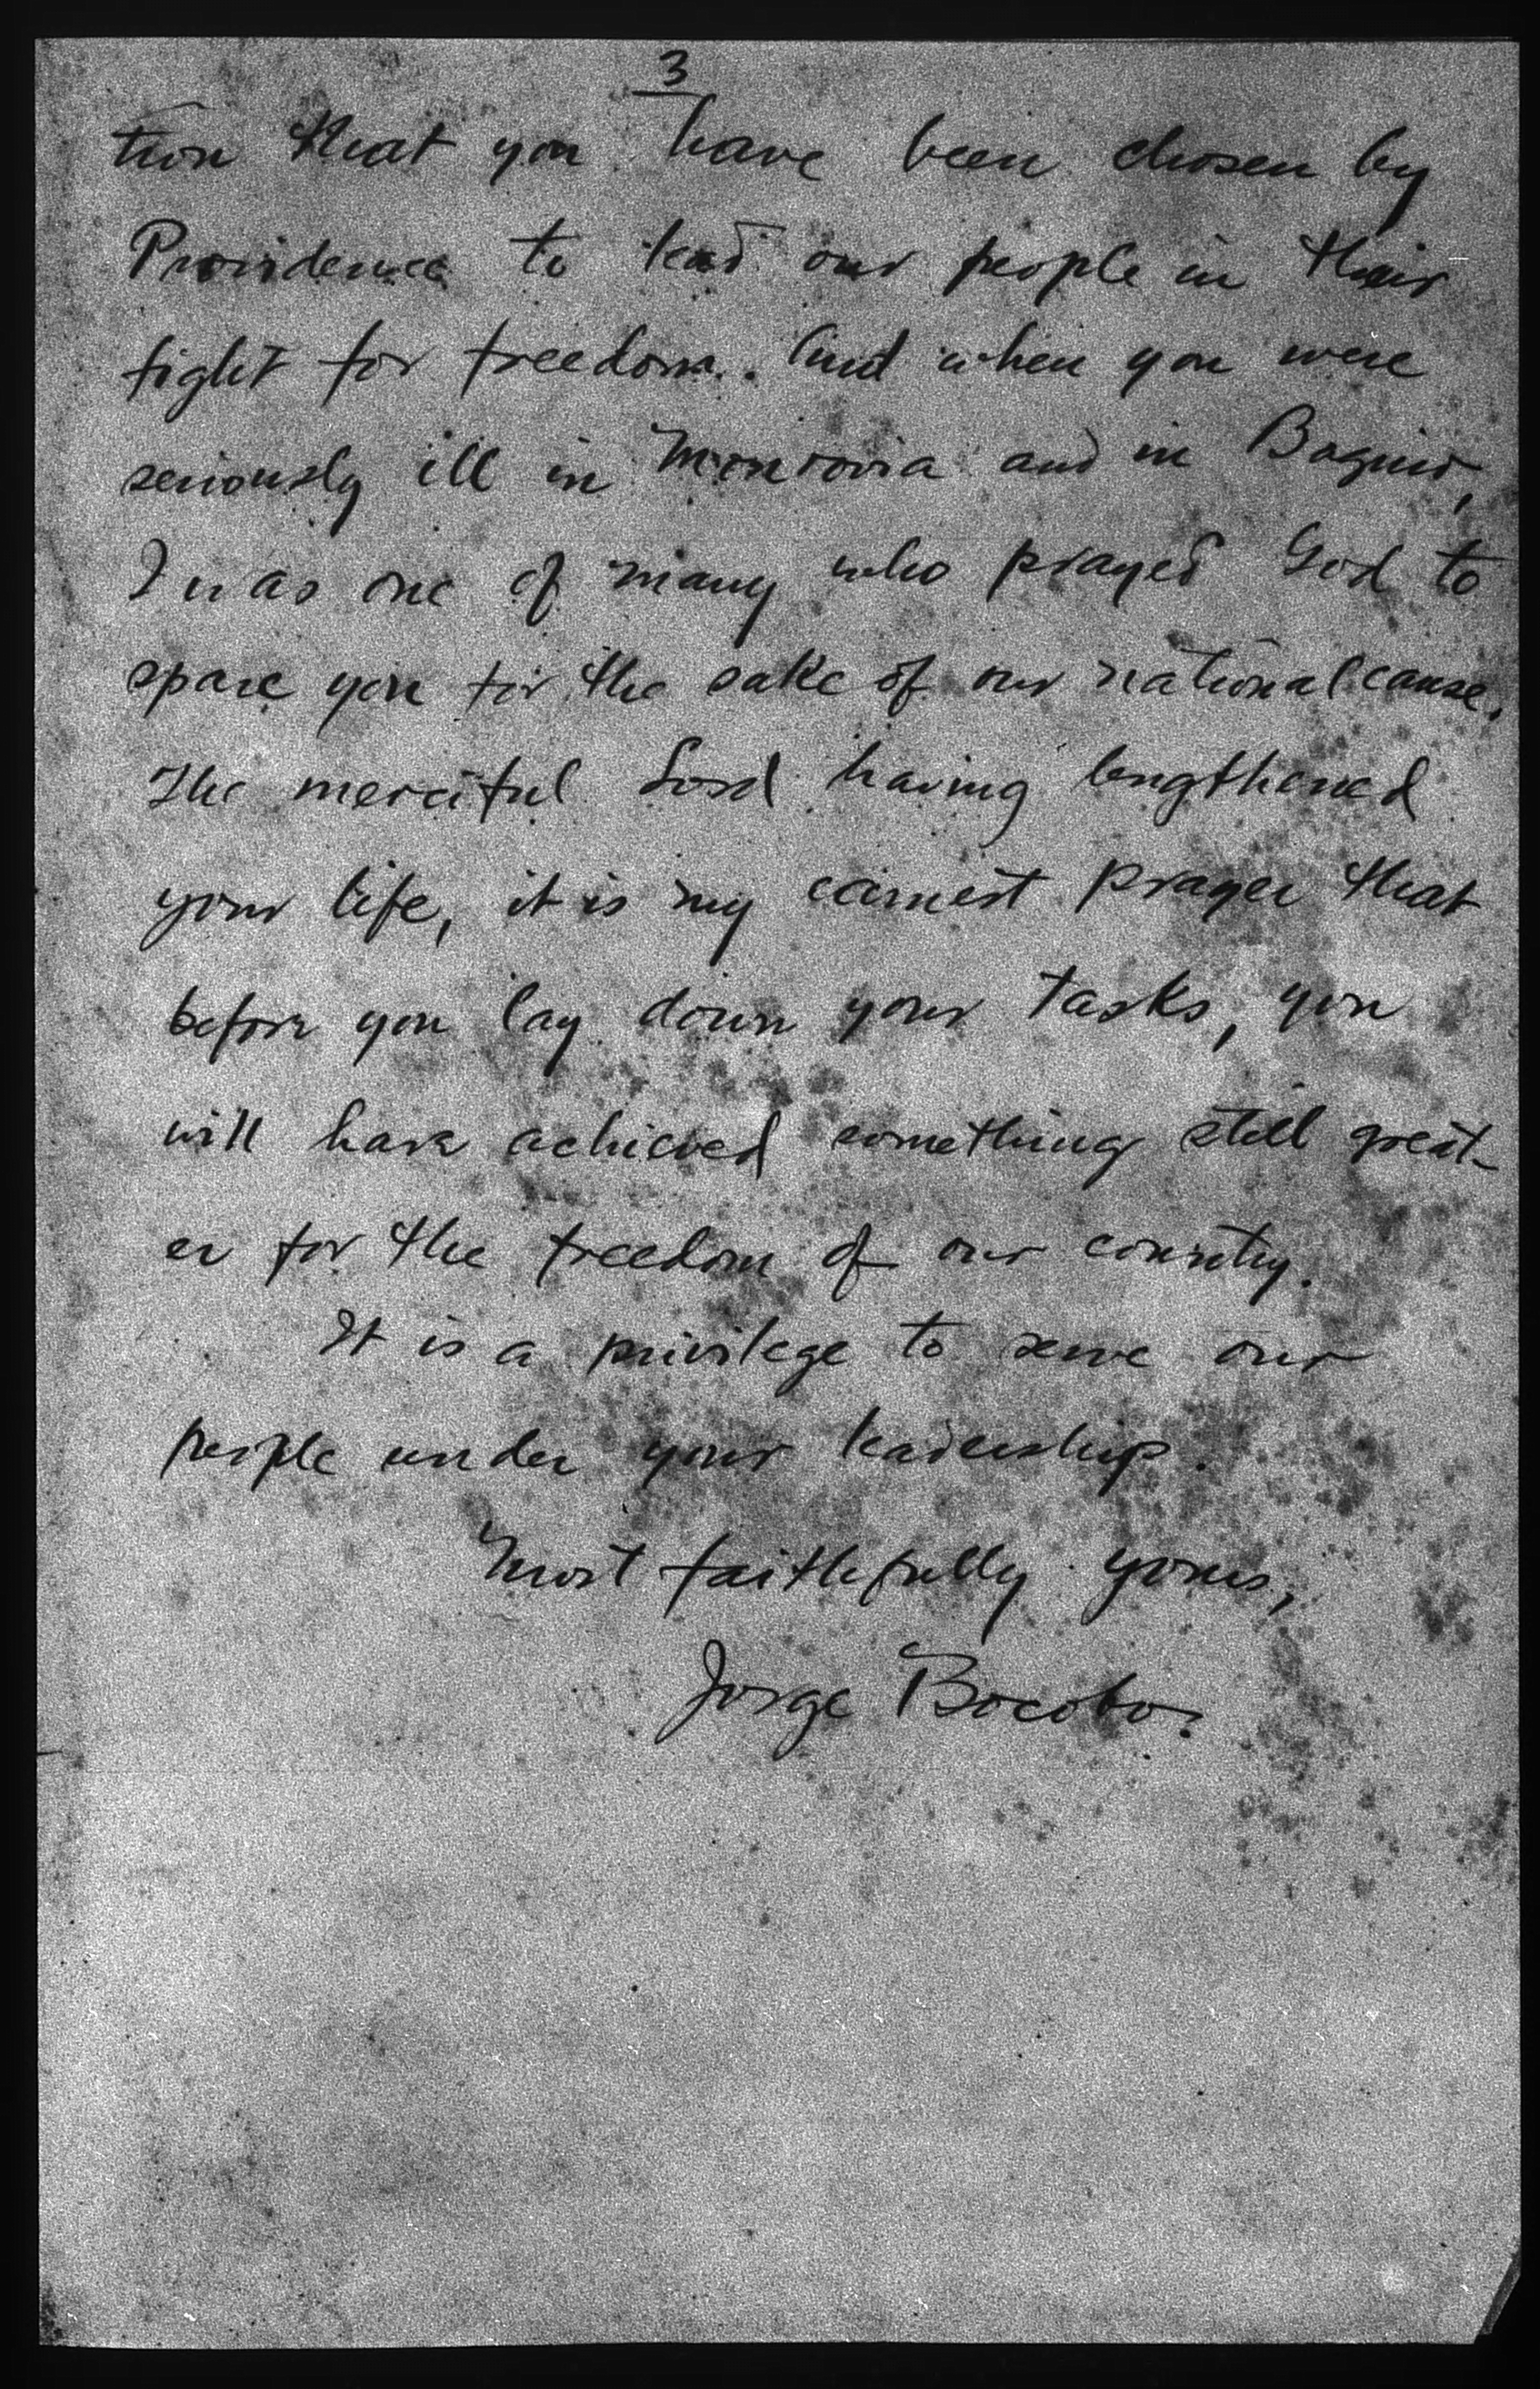 3
tion that you have been chosen by
Providence to lead our people in their
fight for freedom. And when you were
seriously ill in Monrovia and in Baguio,
I was one of many who prayed God to
spare you for the sake of our national cause.
The merciful Lord having lengthened
your life, it is my earnest prayer that
before you lay down your tasks, you
will have achieved something still great-
er for the freedom of our country.
It is a privilege to serve our
people under your leadership.
Most faithfully yours,
Jorge Bocobo.